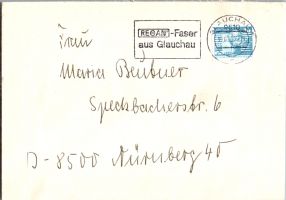 REGAN-Faser
aus Glauchau
GLAUCHAU
Frau
Maria Beubner
Speckbacherstr. 6
D-8500 Nürnberg 40